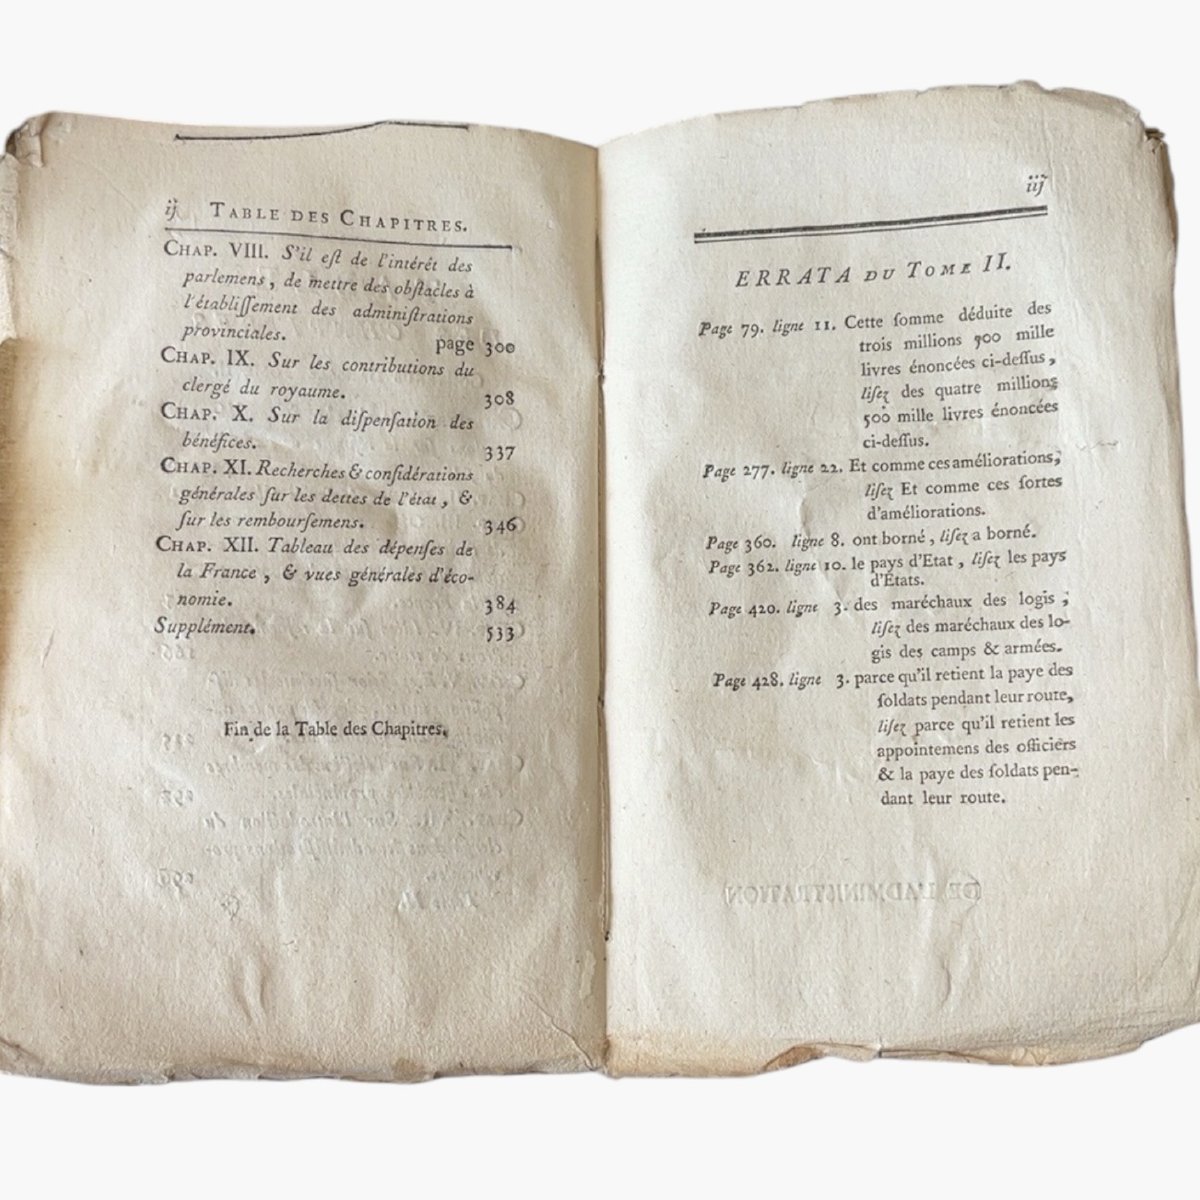 ij TABLE DES CHAPITRES.
CHAP. VIII. S'il eſt de l'intérêt des
parlemens, de mettre des obſtacles à
l'établiſſement des adminiſtrations
provinciales. page 300
CHAP. IX. Sur les contributions du
clergé du royaume. 308
CHAP. X. Sur la diſpenſation des
bénéfices. 337
CHAP. XI. Recherches & conſidérations
générales ſur les dettes de l'état, &
ſur les rembourſemens. 346
CHAP. XII. Tableau des dépenſes de
la France, & vues générales d'éco-
nomie. 384
Supplément. 533
Fin de la Table des Chapitres.
iij
ERRATA DU TOME II.
Page 79. ligne 11. Cette ſomme déduite des
trois millions 900 mille
livres énoncées ci-deſſus,
liſez des quatre millions
500 mille livres énoncées
ci-deſſus.
Page 277. ligne 22. Et comme ces améliorations,
liſez Et comme ces ſortes
d'améliorations.
Page 360. ligne 8. ont borné, liſez a borné.
Page 362. ligne 10. le pays d'Etat, liſez les pays
d'Etats.
Page 420. ligne 3. des maréchaux des logis,
liſez des maréchaux des lo-
gis des camps & armées.
Page 428. ligne 3. parce qu'il retient la paye des
ſoldats pendant leur route,
liſez parce qu'il retient les
appointemens des officiers
& la paye des ſoldats pen-
dant leur route.
DE L'ADMINISTRATION